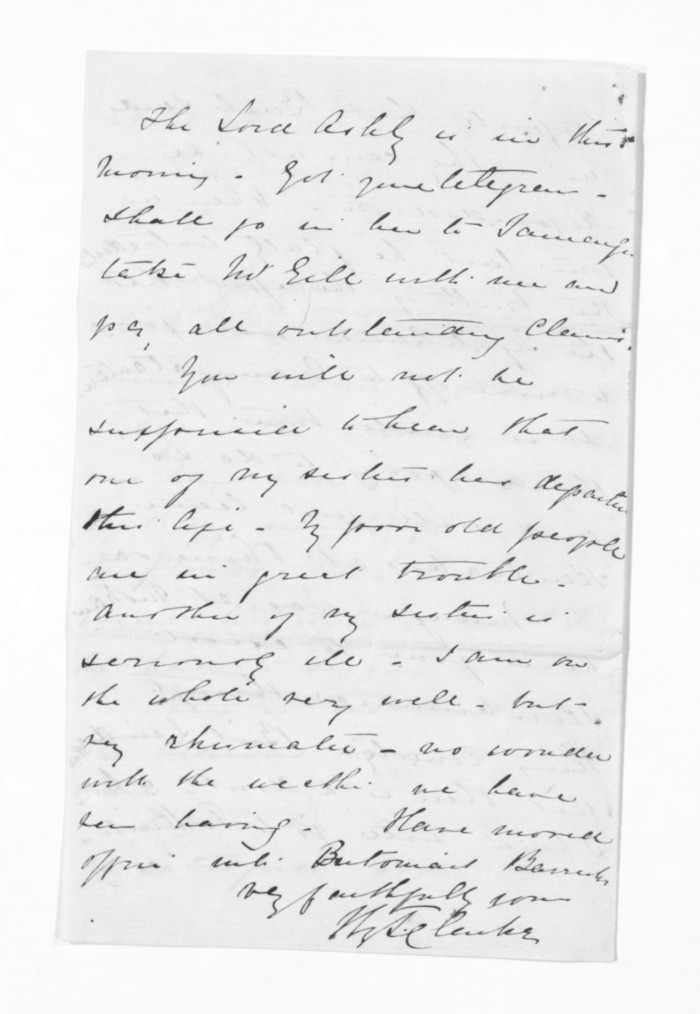 The Lord Ashly is in this
morning - Got your telegram -
shall go in her to Tauranga
take Mr Gill with me and
pay all outstanding Claims.
You will not be
surprised to hear that
one of my sisters has departed
this life - My poor old people
are in great trouble -
another of my sisters is
seriously ill - I am on
the whole very well - but
very rheumatic - no wonder
with the weather we have
been having. Have moved
office into Britomart Barracks
very faithfully yours
Hy Clarke